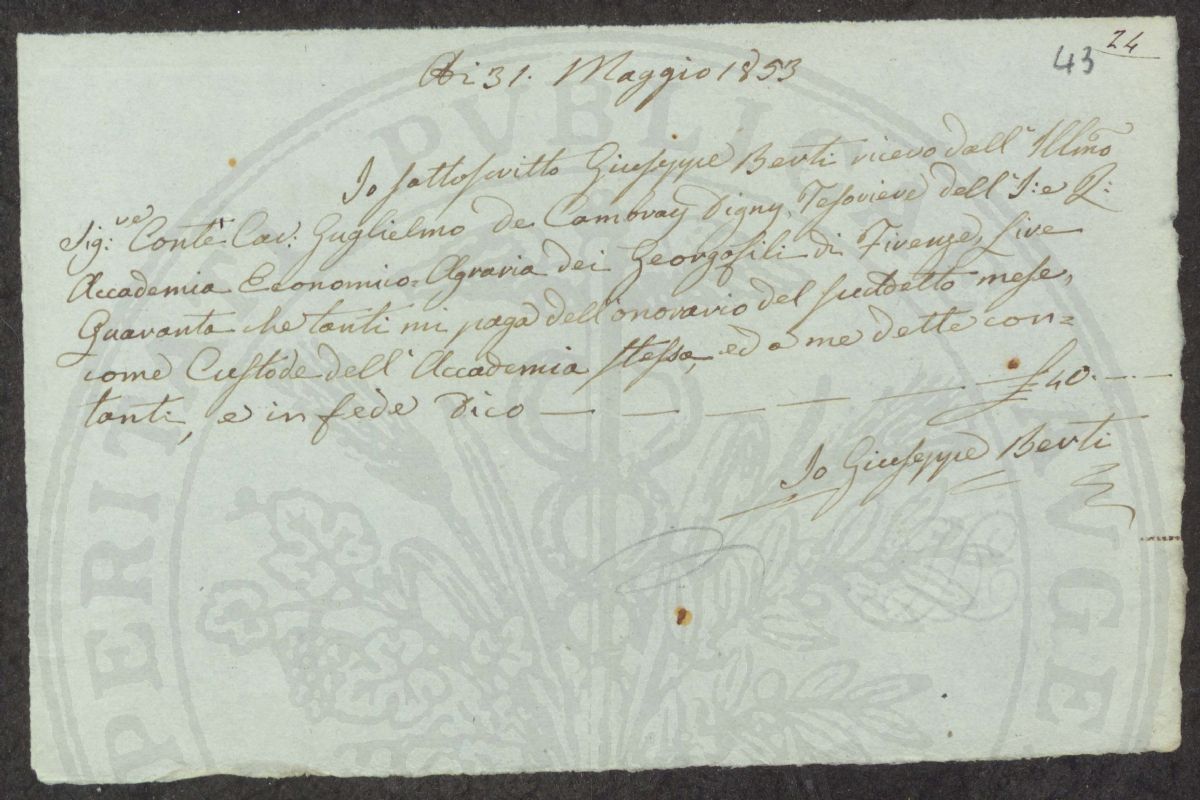 24
43
Adi 31. Maggio 1853
Io sottoscritto Giuseppe Berti ricevo dall' Illmo
Sig:re Conte Cav: Guglielmo de Cambray Digny, Tesoriere dell' I: e R:
Accademia Economico=Agraria dei Georgofili di Firenze, Lire
Quaranta che tanti mi paga dell'onorario del suddetto mese,
come Custode dell' Accademia stessa, ed a me dette con=
tanti, e in fede dico — — — — — — £ 40. — —
Io Giuseppe Berti
PUBLICAE
PERITATI
AVGE